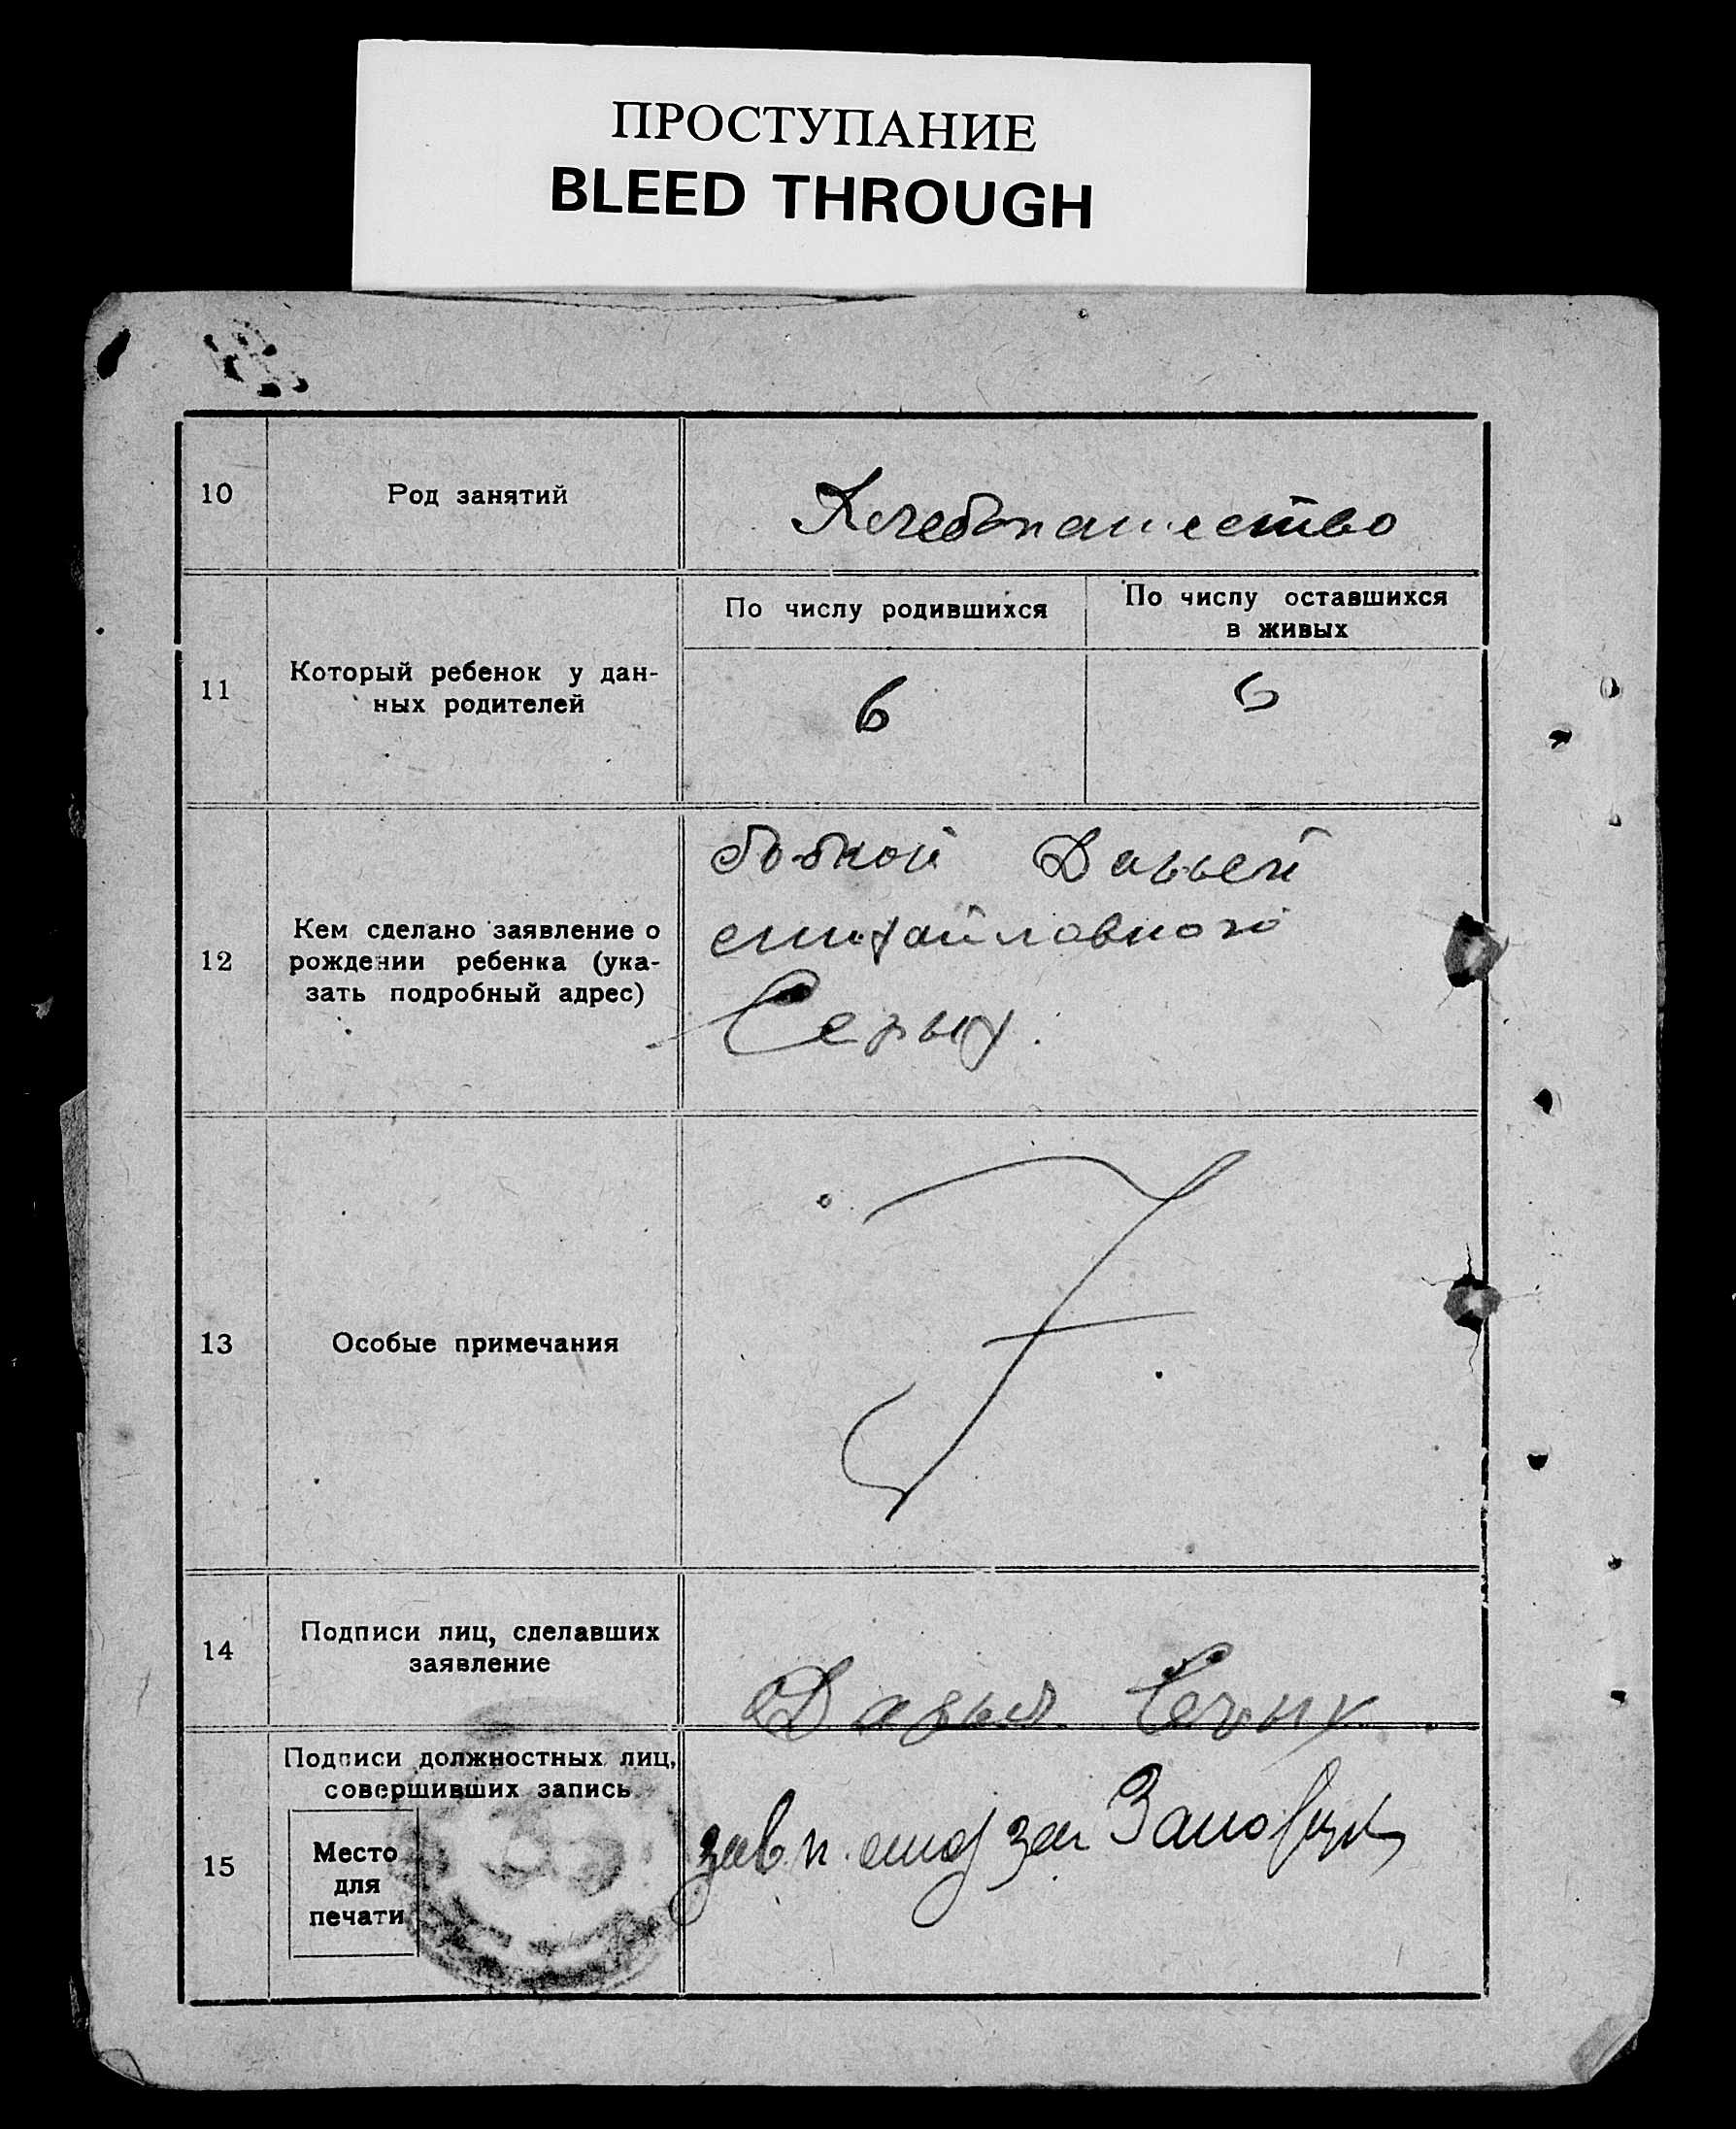 ПРОСТУПАНИЕ
BLEED THROUGH
10
Род занятий
Хлебопашество
11
Который ребенок у дан-
ных родителей
По числу родившихся
По числу оставшихся
в живых
6
6
12
Кем сделано заявление о
рождении ребенка (ука-
зать подробный адрес)
бабкой Дарьей
михайловной
Серых.
13
Особые примечания
14
Подписи лиц, сделавших
заявление
Дарья Серых.
15
Подписи должностных лиц,
совершивших запись
Место
для
печати
зав. п. стол заг